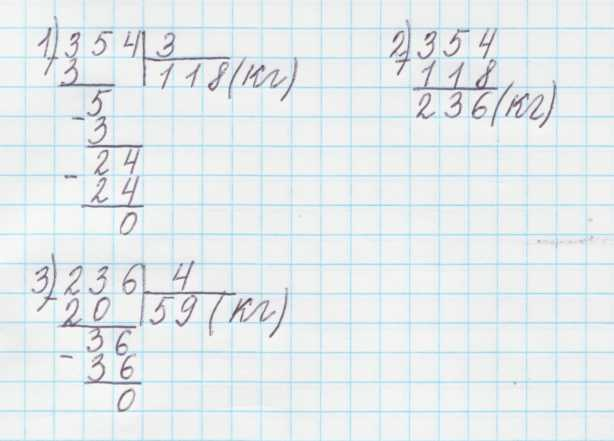 1) 354 | 3
- 3 | 118 (кг)
5
- 3
24
- 24
0
2) 354
- 118
236 (кг)
3) 236 | 4
- 20 | 59 (кг)
36
- 36
0